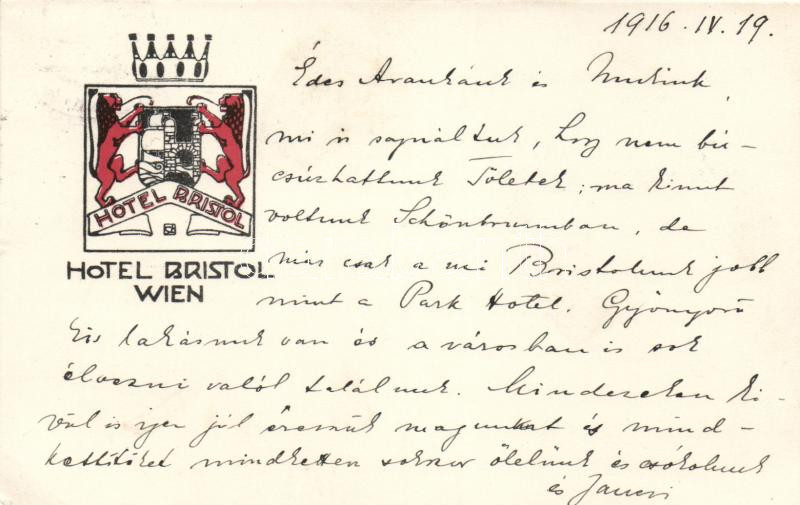 1916. IV. 19.
Édes Arankánk és
mi is sajnáltuk, hogy nem bú-
csúzhattunk Tőletek; ma kinnt
voltunk Schönbrunnban, de
HOTEL BRISTOL
HOTEL BRISTOL
WIEN
már csak a mi Bristolunk jobb
mint a Park Hotel. Gyönyörű
kis lakásunk van és a városban is sok
élvezni valót találunk. Mindezeken ki-
vül is igen jól érezzük magunkat és mind-
kettőtöket mindketten sokszor ölelünk és csókolunk
és Jancsi